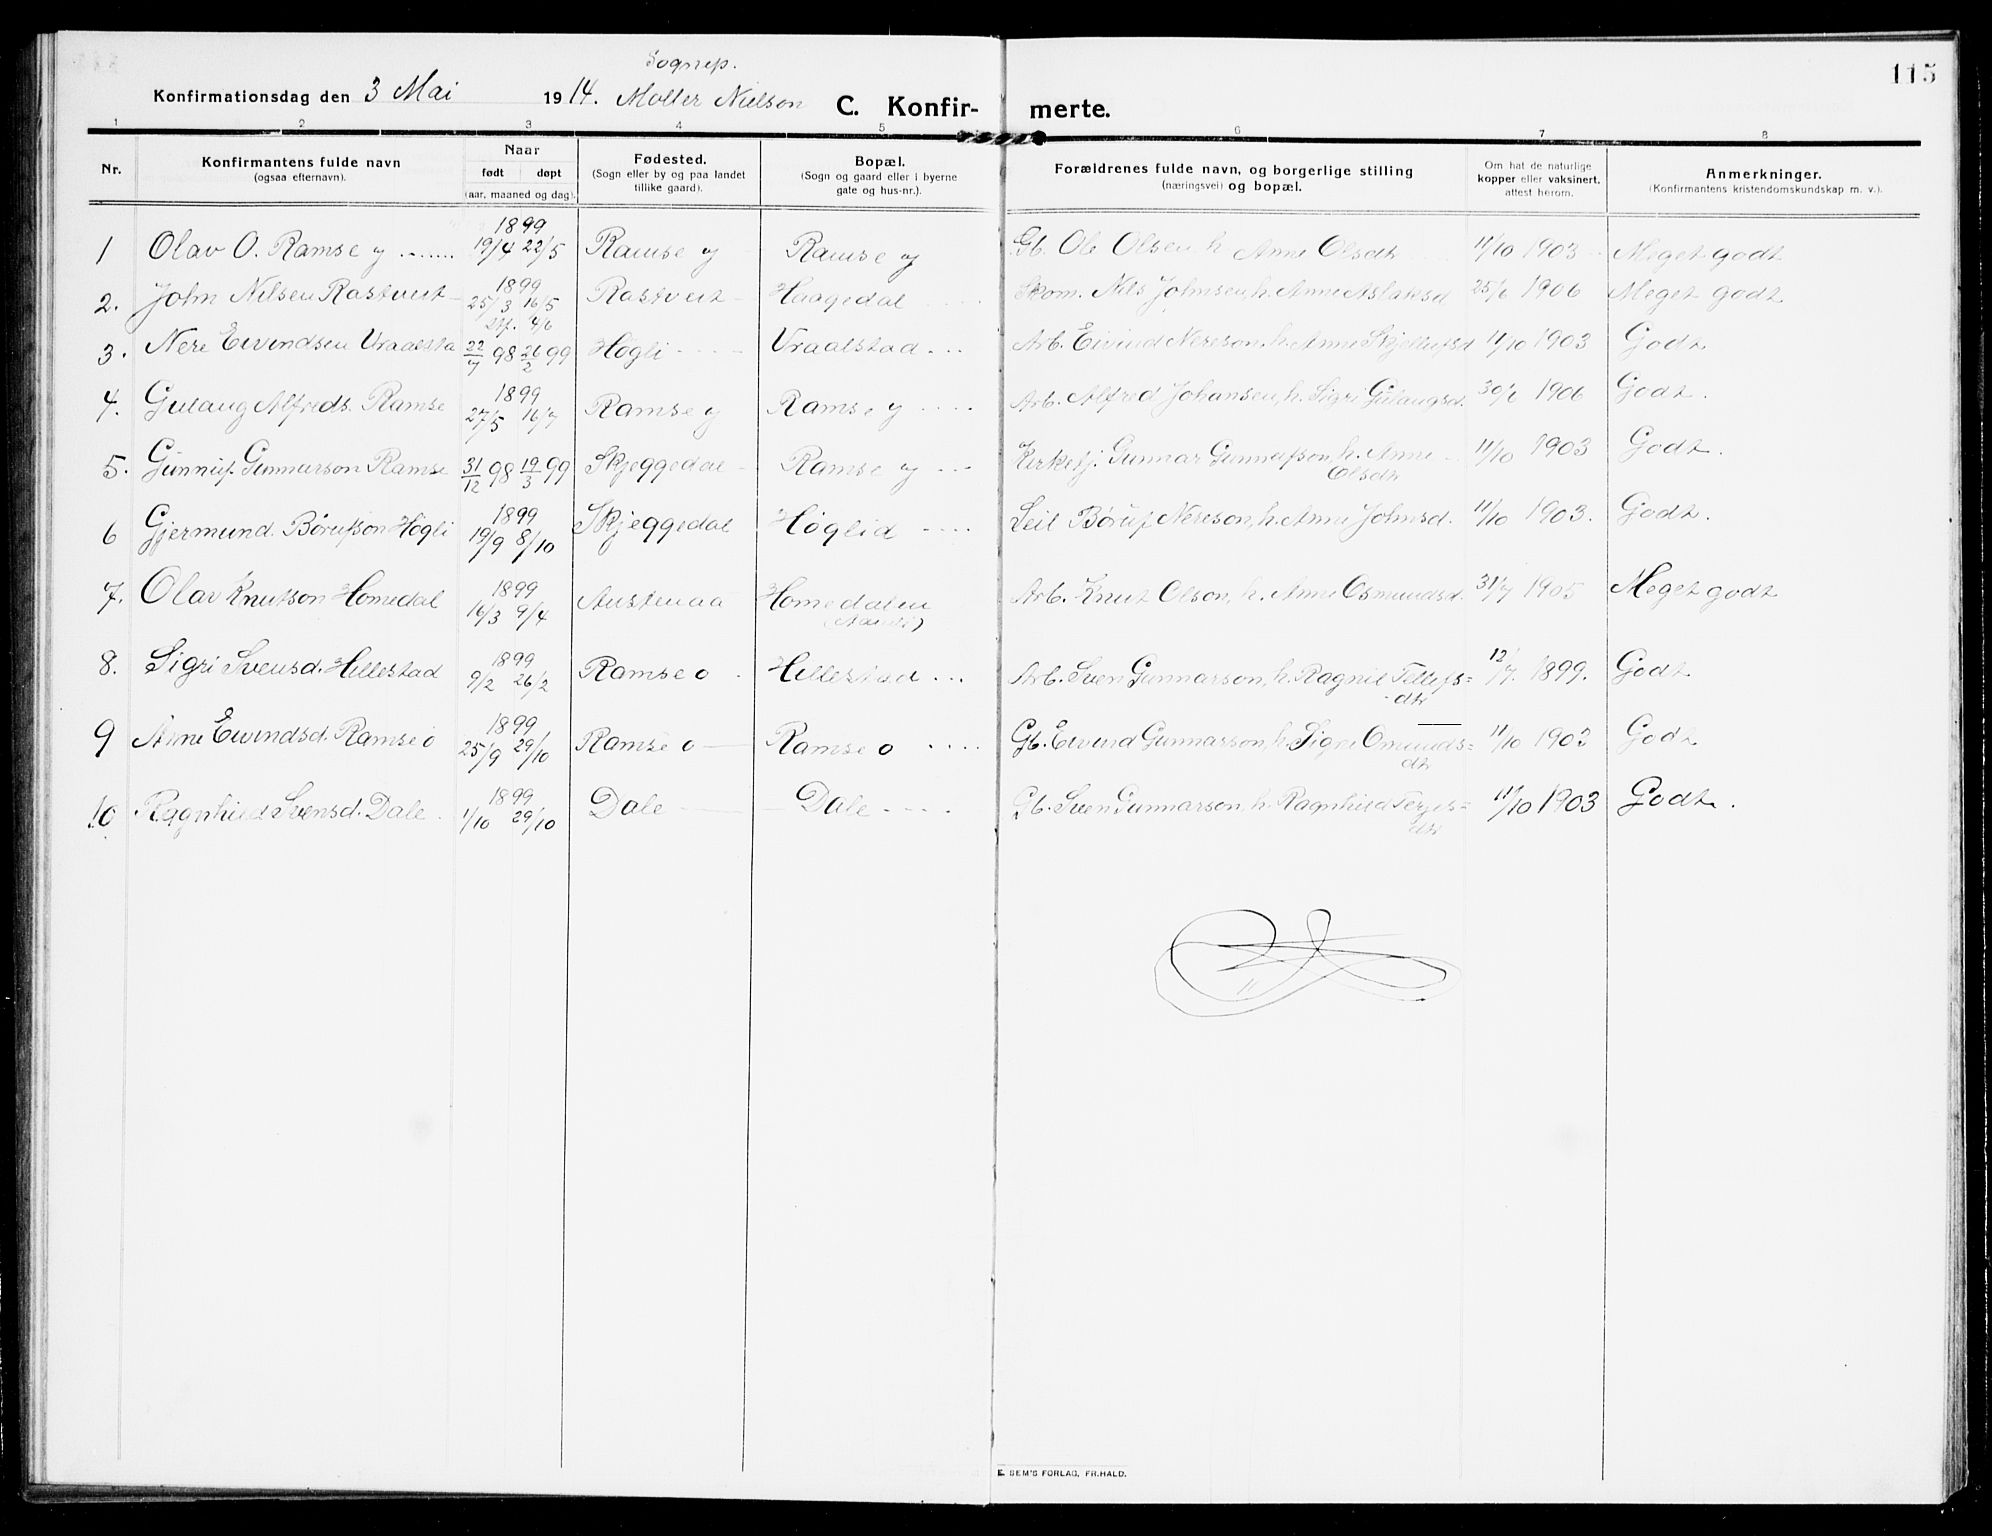 115
Sognep.
Konfirmationsdag den 3 Mai 1914. Møller Nielsen C. Konfir- merte.
1 2 3 4 5 6 7 8
Nr. Konfirmantens fulde navn (ogsaa efternavn). Naar født døpt (aar, maaned og dag). Fødested. (Sogn eller by og paa landet tillike gaard). Bopæl. (Sogn og gaard eller i byerne gate og hus-nr.). Forældrenes fulde navn, og borgerlige stilling (næringsvei) og bopæl. Om hat de naturlige kopper eller vaksinert, attest herom. Anmerkninger. (Konfirmantens kristendomskundskap m. v.).
1 Olav O. Ramse y 1899 19/4 22/5 Ramse y Ramse y Gb. Ole Olsen h. Anne Olsdtr 11/10 1903 Meget godt
2. John Nilsen Rastveit 1899 25/3 16/5 Rastveit Haagedal Skom. Nils Johnsen, h. Anne Aslaksd 25/6 1906 Meget godt
3. Nere Eivindsen Vraalsta 22/7 98 26/2 99 Høgli Vraalstad Arb. Eivind Nereson, h. Anne Skjellufsd 11/10 1903 Godt
4. Gulaug Alfreds. Ramse 1899 27/5 16/7 Ramse y Ramse y Arb. Alfred Johansen, h. Sigri Gulaugsd. 30/6 1906 Godt.
5. Gunnuf. Gunnarson Ramse 31/12 98 19/3 99 Skjeggedal Ramse y Kirkesj. Gunnar Gunnufson, h. Anne Olsdtr 11/10 1903 Godt.
6 Gjermund Børufson Høgli 1899 19/9 8/10 Skjeggedal Høglid Leil Børuf Nereson, h. Anne Johnsd. 11/10 1903. Godt.
7. Olav Knutson Homedal 1899 14/3 9/4 Austenaa Homedalen Arb. Knut Olson, h. Anne Osmundsd. 31/7 1905 Meget godt
8. Sigri Svensd. Hillestad 1899 9/2 26/2 Ramse o Hillestad Arb. Sven Gunnarson, h. Ragnil Tellefs= dtr 12/7. 1899. Godt
9 Anne Eivindsd. Ramse o 1899 25/9 29/10 Ramse o Ramse o Gb. Eivind Gunnarson, h. Sigri Omunds= dtr 11/10 1903 Godt
10 Ragnhild Svensd. Dale 1899 1/10 29/10 Dale Dale Gb. Sven Gunnarson, h. Ragnhild Terjes= dtr 11/10 1903 Godt.
E. SEM'S FORLAG, FR.HALD.